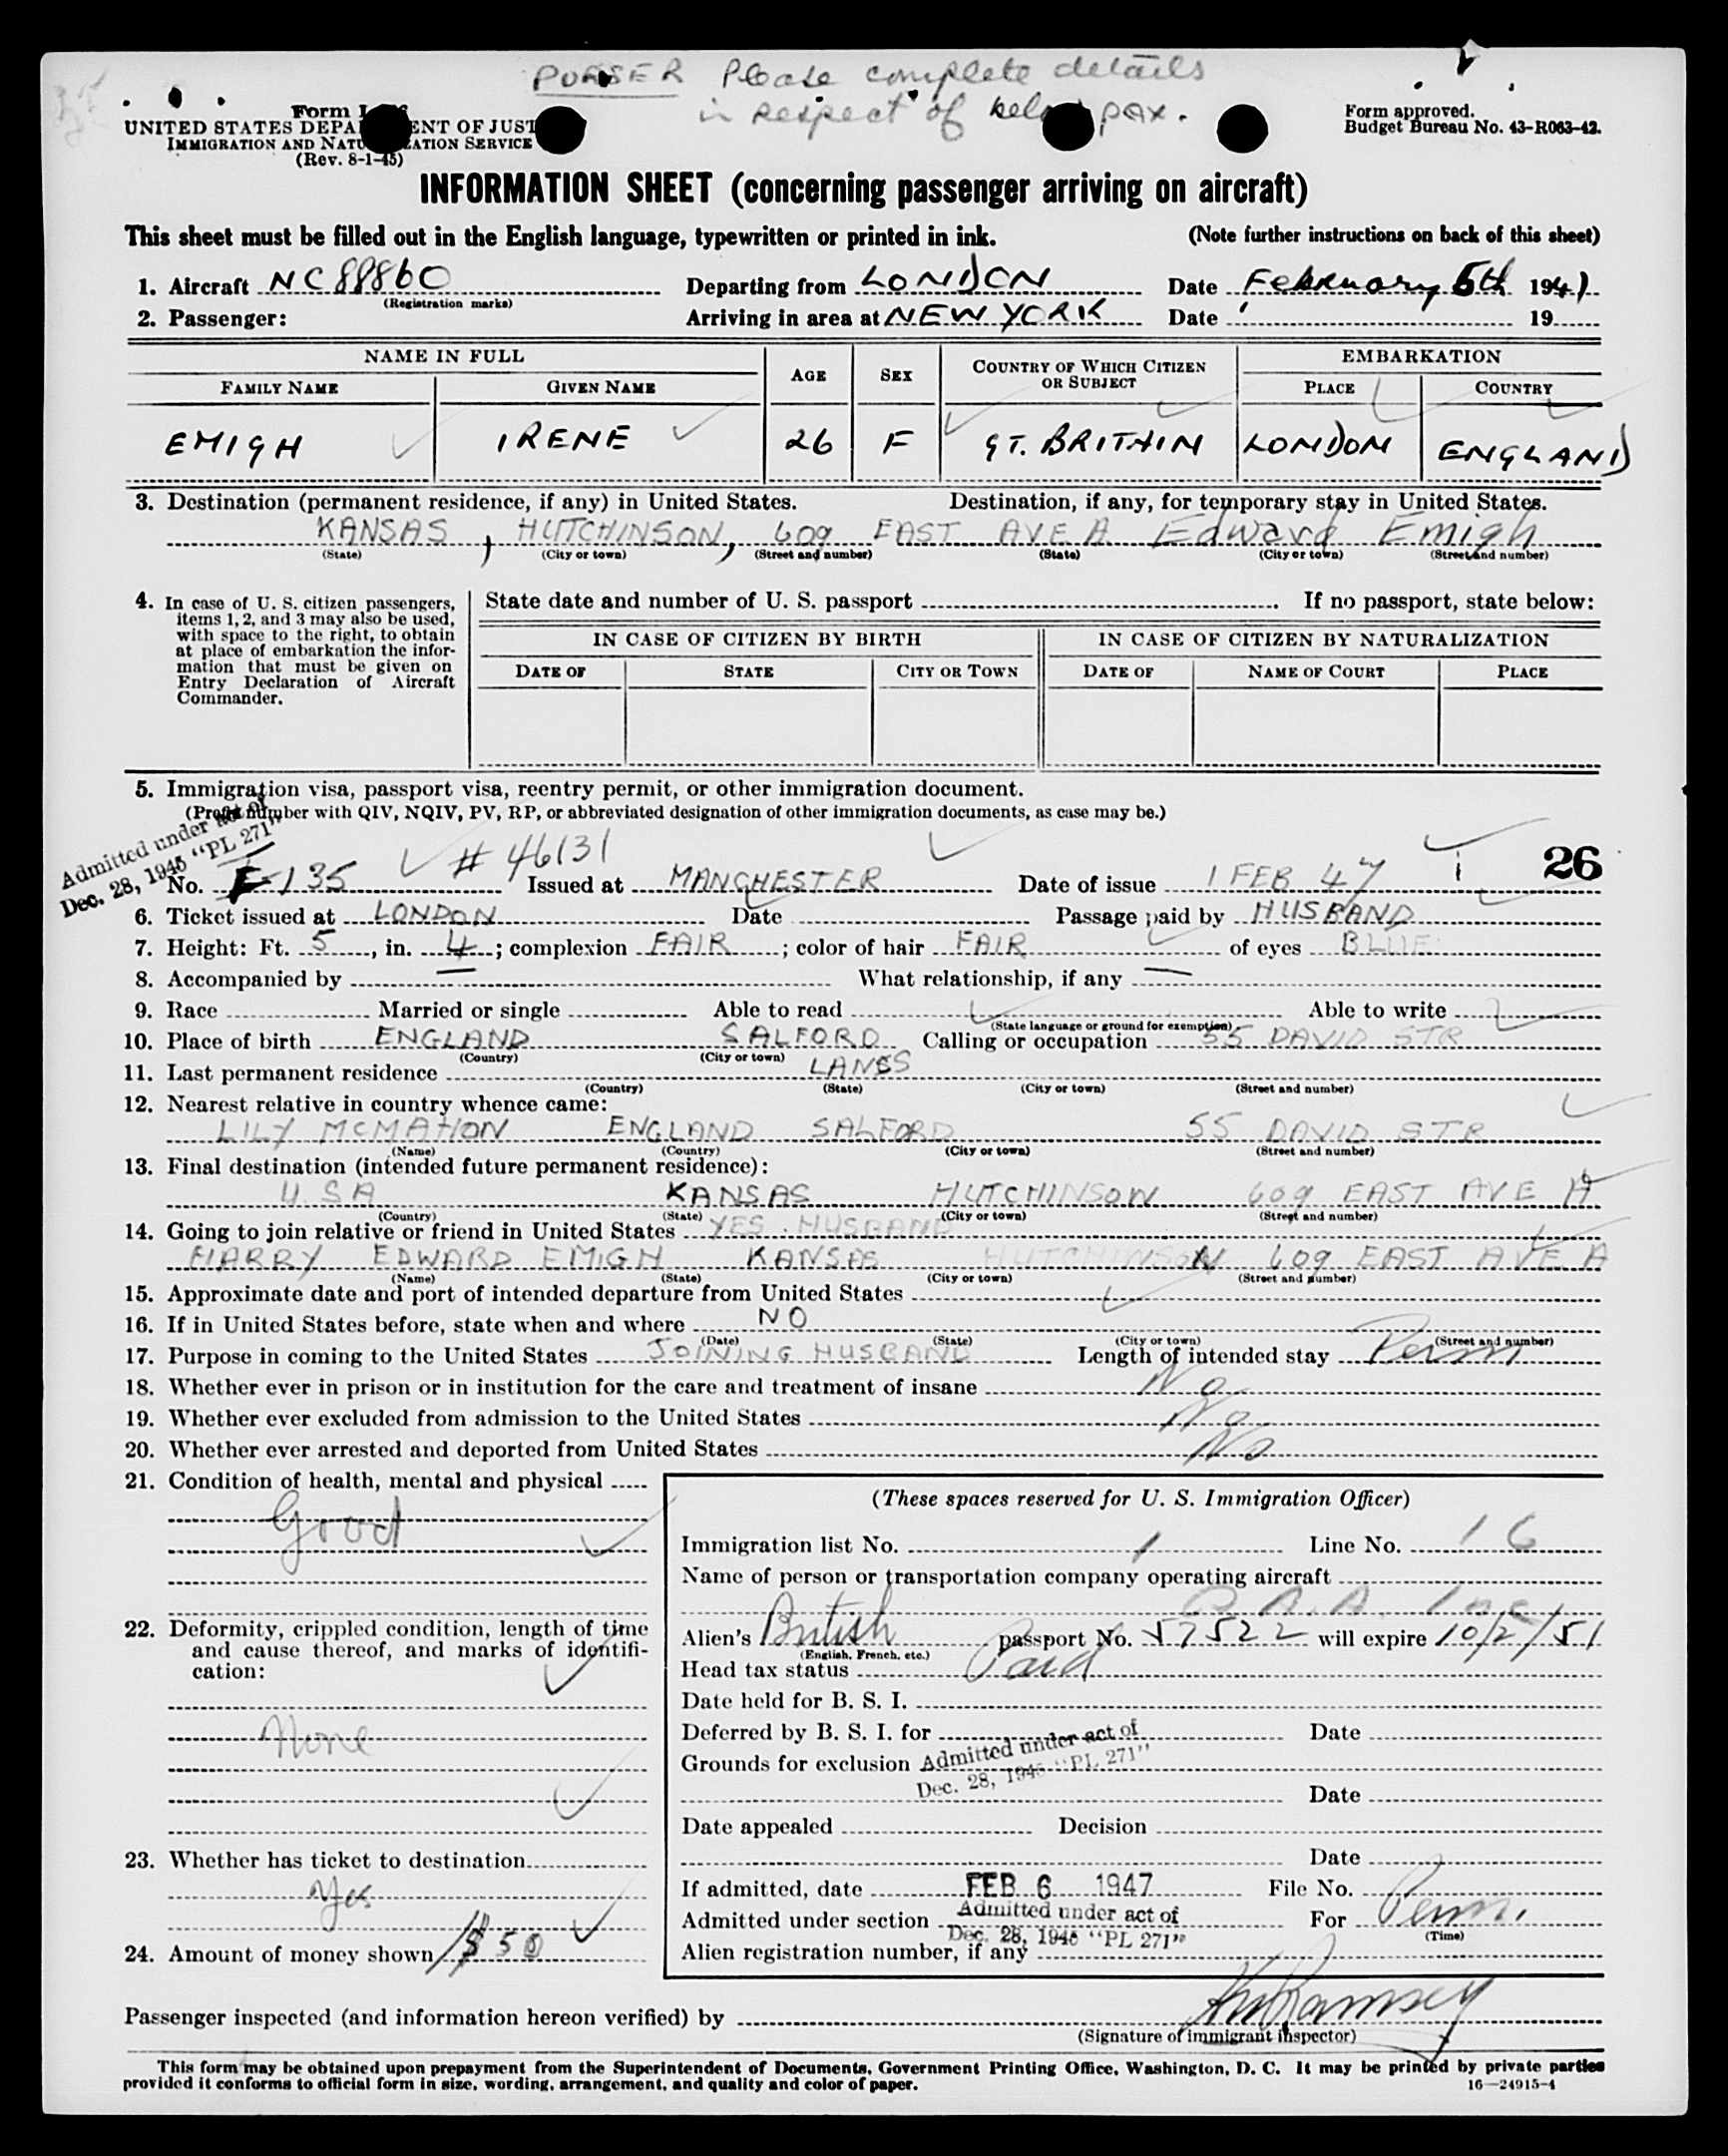 PURSER Please complete details
in respect of below pax.
Form I-
UNITED STATES DEPARTMENT OF JUSTICE
IMMIGRATION AND NATURALIZATION SERVICE
(Rev. 8-1-45)
Form approved.
Budget Bureau No. 43-R063-42.
INFORMATION SHEET (concerning passenger arriving on aircraft)
This sheet must be filled out in the English language, typewritten or printed in ink. (Note further instructions on back of this sheet)
1. Aircraft NC88860 Departing from LONDON Date February 5th 1947
(Registration marks)
2. Passenger: Arriving in area at NEW YORK Date 19
NAME IN FULL AGE SEX COUNTRY OF WHICH CITIZEN OR SUBJECT EMBARKATION
FAMILY NAME GIVEN NAME PLACE COUNTRY
EMIGH IRENE 26 F GT. BRITAIN LONDON ENGLAND
3. Destination (permanent residence, if any) in United States. Destination, if any, for temporary stay in United States.
KANSAS, HUTCHINSON, 609 EAST AVE A Edward Emigh
(State) (City or town) (Street and number) (State) (City or town) (Street and number)
4. In case of U. S. citizen passengers, items 1, 2, and 3 may also be used, with space to the right, to obtain at place of embarkation the information that must be given on Entry Declaration of Aircraft Commander.
State date and number of U. S. passport If no passport, state below:
IN CASE OF CITIZEN BY BIRTH IN CASE OF CITIZEN BY NATURALIZATION
DATE OF STATE CITY OR TOWN DATE OF NAME OF COURT PLACE
5. Immigration visa, passport visa, reentry permit, or other immigration document.
(Prefix number with QIV, NQIV, PV, RP, or abbreviated designation of other immigration documents, as case may be.)
Admitted under act of
Dec. 28, 1945 "PL 271"
# 46131
26
No. E-135 Issued at MANCHESTER Date of issue 1 FEB 47
6. Ticket issued at LONDON Date Passage paid by HUSBAND
7. Height: Ft. 5, in. 4; complexion FAIR; color of hair FAIR of eyes BLUE
8. Accompanied by — What relationship, if any —
9. Race Married or single Able to read Able to write
(State language or ground for exemption)
10. Place of birth ENGLAND SALFORD Calling or occupation 55 DAVID STR
(Country) (City or town)
11. Last permanent residence LANSS
(Country) (State) (City or town) (Street and number)
12. Nearest relative in country whence came:
LILY MCMAHON ENGLAND SALFORD 55 DAVID STR
(Name) (Country) (City or town) (Street and number)
13. Final destination (intended future permanent residence):
U.S.A KANSAS HUTCHINSON 609 EAST AVE A
(Country) (State) (City or town) (Street and number)
14. Going to join relative or friend in United States YES. HUSBAND
HARRY EDWARD EMIGH KANSAS HUTCHINSON 609 EAST AVE A
(Name) (State) (City or town) (Street and number)
15. Approximate date and port of intended departure from United States
16. If in United States before, state when and where NO
(Date) (State) (City or town) (Street and number)
17. Purpose in coming to the United States JOINING HUSBAND Length of intended stay Perm
18. Whether ever in prison or in institution for the care and treatment of insane No
19. Whether ever excluded from admission to the United States No
20. Whether ever arrested and deported from United States No
21. Condition of health, mental and physical
Good
22. Deformity, crippled condition, length of time and cause thereof, and marks of identification:
None
23. Whether has ticket to destination
Yes
24. Amount of money shown $50
(These spaces reserved for U. S. Immigration Officer)
Immigration list No. 1 Line No. 16
Name of person or transportation company operating aircraft
P. A. A. Inc
Alien's British passport No. 57522 will expire 10/2/51
(English, French, etc.)
Head tax status Paid
Date held for B. S. I.
Deferred by B. S. I. for Date
Grounds for exclusion Admitted under act of
Dec. 28, 1945 "PL 271"
Date
Date appealed Decision
Date
If admitted, date FEB 6 1947 File No.
Admitted under section Admitted under act of Dec. 28, 1945 "PL 271" For Perm.
(Time)
Alien registration number, if any
Passenger inspected (and information hereon verified) by Ramsey
(Signature of immigrant inspector)
This form may be obtained upon prepayment from the Superintendent of Documents, Government Printing Office, Washington, D. C. It may be printed by private parties
provided it conforms to official form in size, wording, arrangement, and quality and color of paper. 16—24915-4